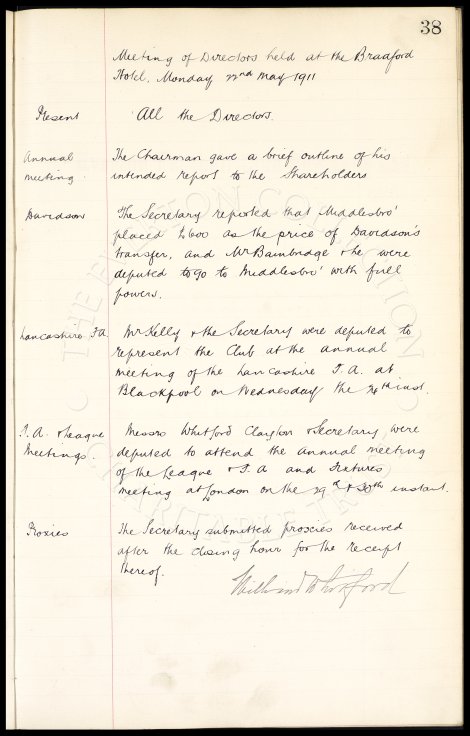 38
Meeting of Directors held at the Bradford
Hotel, Monday 22nd May 1911
Present All the Directors.
Annual The Chairman gave a brief outline of his
meeting. intended report to the Shareholders
Davidson The Secretary reported that Middlesbro'
placed £600 as the price of Davidson's
transfer, and Mr Bainbridge & he were
deputed to go to Middlesbro' with full
powers.
Lancashire F.A. Mr Kelly & the Secretary were deputed to
represent the Club at the annual
meeting of the Lancashire F.A. at
Blackpool on Wednesday the inst.
F.A. & League Messrs Whitford Clayton & Secretary were
Meetings. deputed to attend the annual meeting
of the League & F.A and Fixtures
meeting at London on the 29th & 30th instant.
Proxies The Secretary submitted proxies received
after the closing hour for the receipt
thereof.
William Whitford